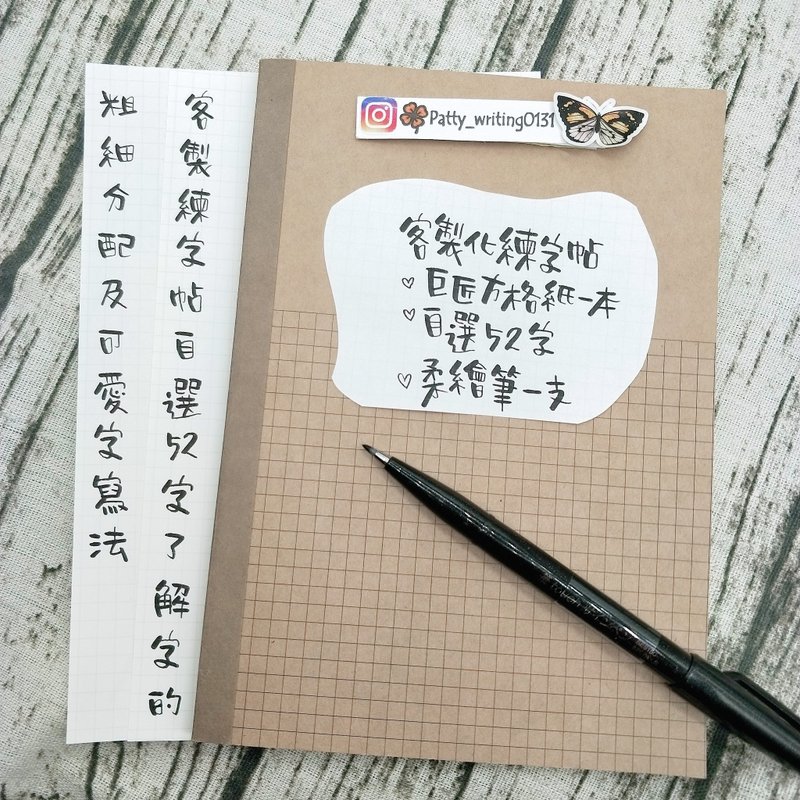 Patty_writing0131
客製化練字帖
♡巨匠方格紙一本
♡自選52字
♡柔繪筆一支
客製練字帖自選52字了解字的
粗細分配及可愛字寫法